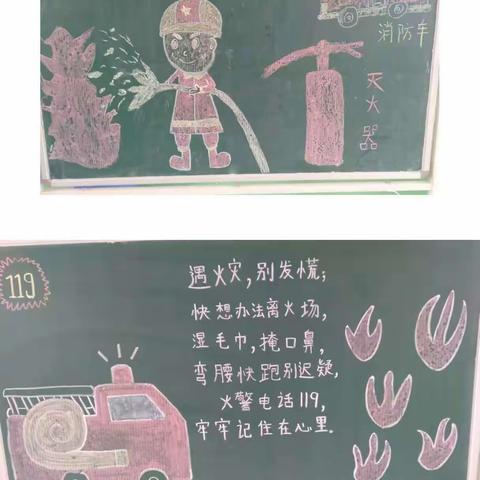 消防车
灭火器
119
遇火灾，别发慌；
快想办法离火场，
湿毛巾，掩口鼻，
弯腰快跑别迟疑，
火警电话119，
牢牢记住在心里.